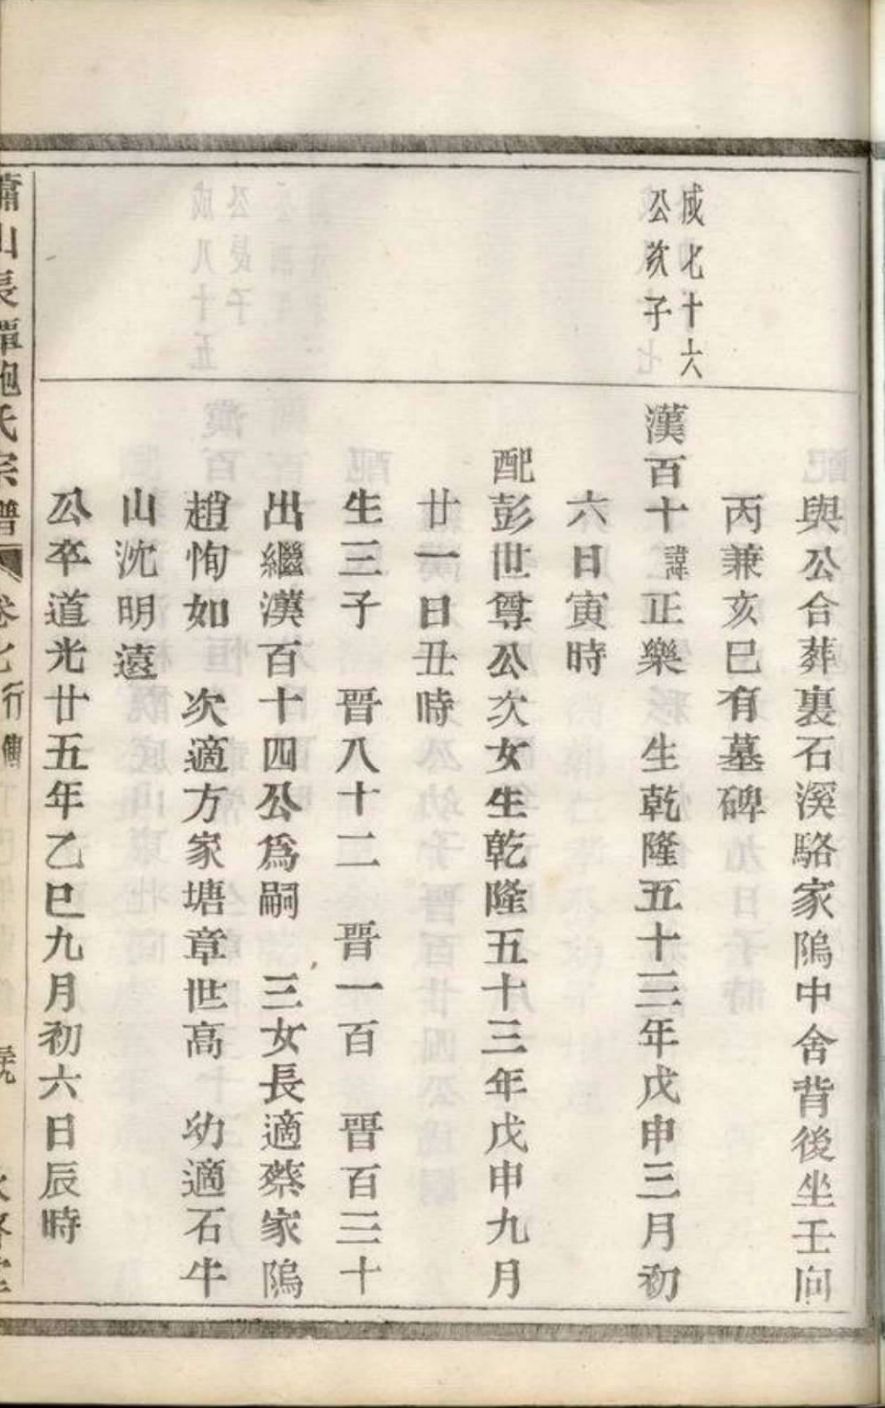 與公合葬裏石溪駱家隖中舍背後坐壬向
丙兼亥巳有墓碑
成七十六
公次子
漢百十諱正樂 生乾隆五十三年戊申三月初
六日寅時
配彭世尊公次女生乾隆五十三年戊申九月
廿一日丑時
生三子 晋八十二 晋一百 晋百三十
出繼漢百十四公爲嗣 三女長適蔡家隖
趙恂如 次適方家塘章世高 幼適石牛
山沈明遠
公卒道光廿五年乙巳九月初六日辰時
蕭山長潭鮑氏宗譜 卷七行傳